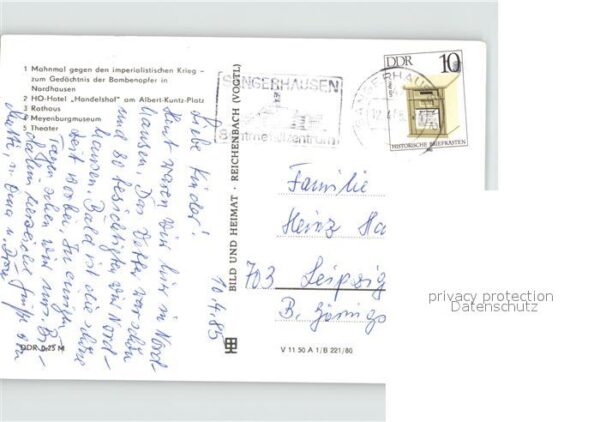 1 Mahnmal gegen den imperialistischen Krieg –
zum Gedächtnis der Bombenopfer in
Nordhausen
2 HO-Hotel „Handelshof" am Albert-Kuntz-Platz
3 Rathaus
4 Meyenburgmuseum
5 Theater
Liebe Kinder!
Heut waren wir hier in Nord-
hausen. Das Wetter war schön
und so besichtigten wir Nord-
hausen. Bald ist die schöne
Zeit vorbei. In einigen
Tagen sehen wir uns. Bis
dahin herzliche Grüße von
Mutti, u. Oma u.
10.4.85
DDR 0,25 M
BILD UND HEIMAT · REICHENBACH (VOGTL)
V 11 50 A 1/B 221/80
SANGERHAUSEN
SANGERHAUSEN
DDR 10
HISTORISCHE BRIEFKÄSTEN
Familie
Heinz Ha
703 Leipzig
privacy protection
Datenschutz